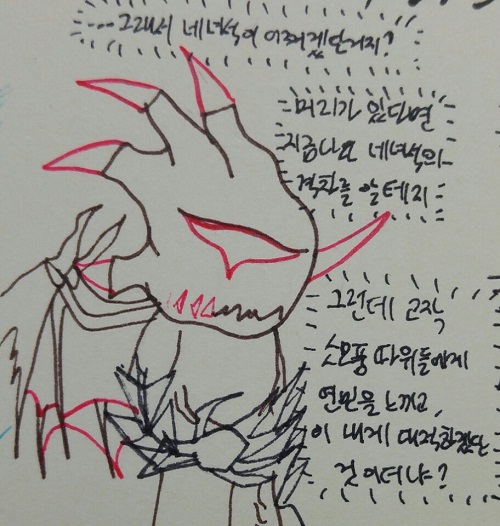 ....그래서 네녀석이 이뤄낸게 뭔지?
머리가 있다면
지금나와 네녀석의
격차를 알테지
그런데 고작
소모품 따위들에게
연민을 느끼고,
이 내게 대적하겠단
것이더냐?